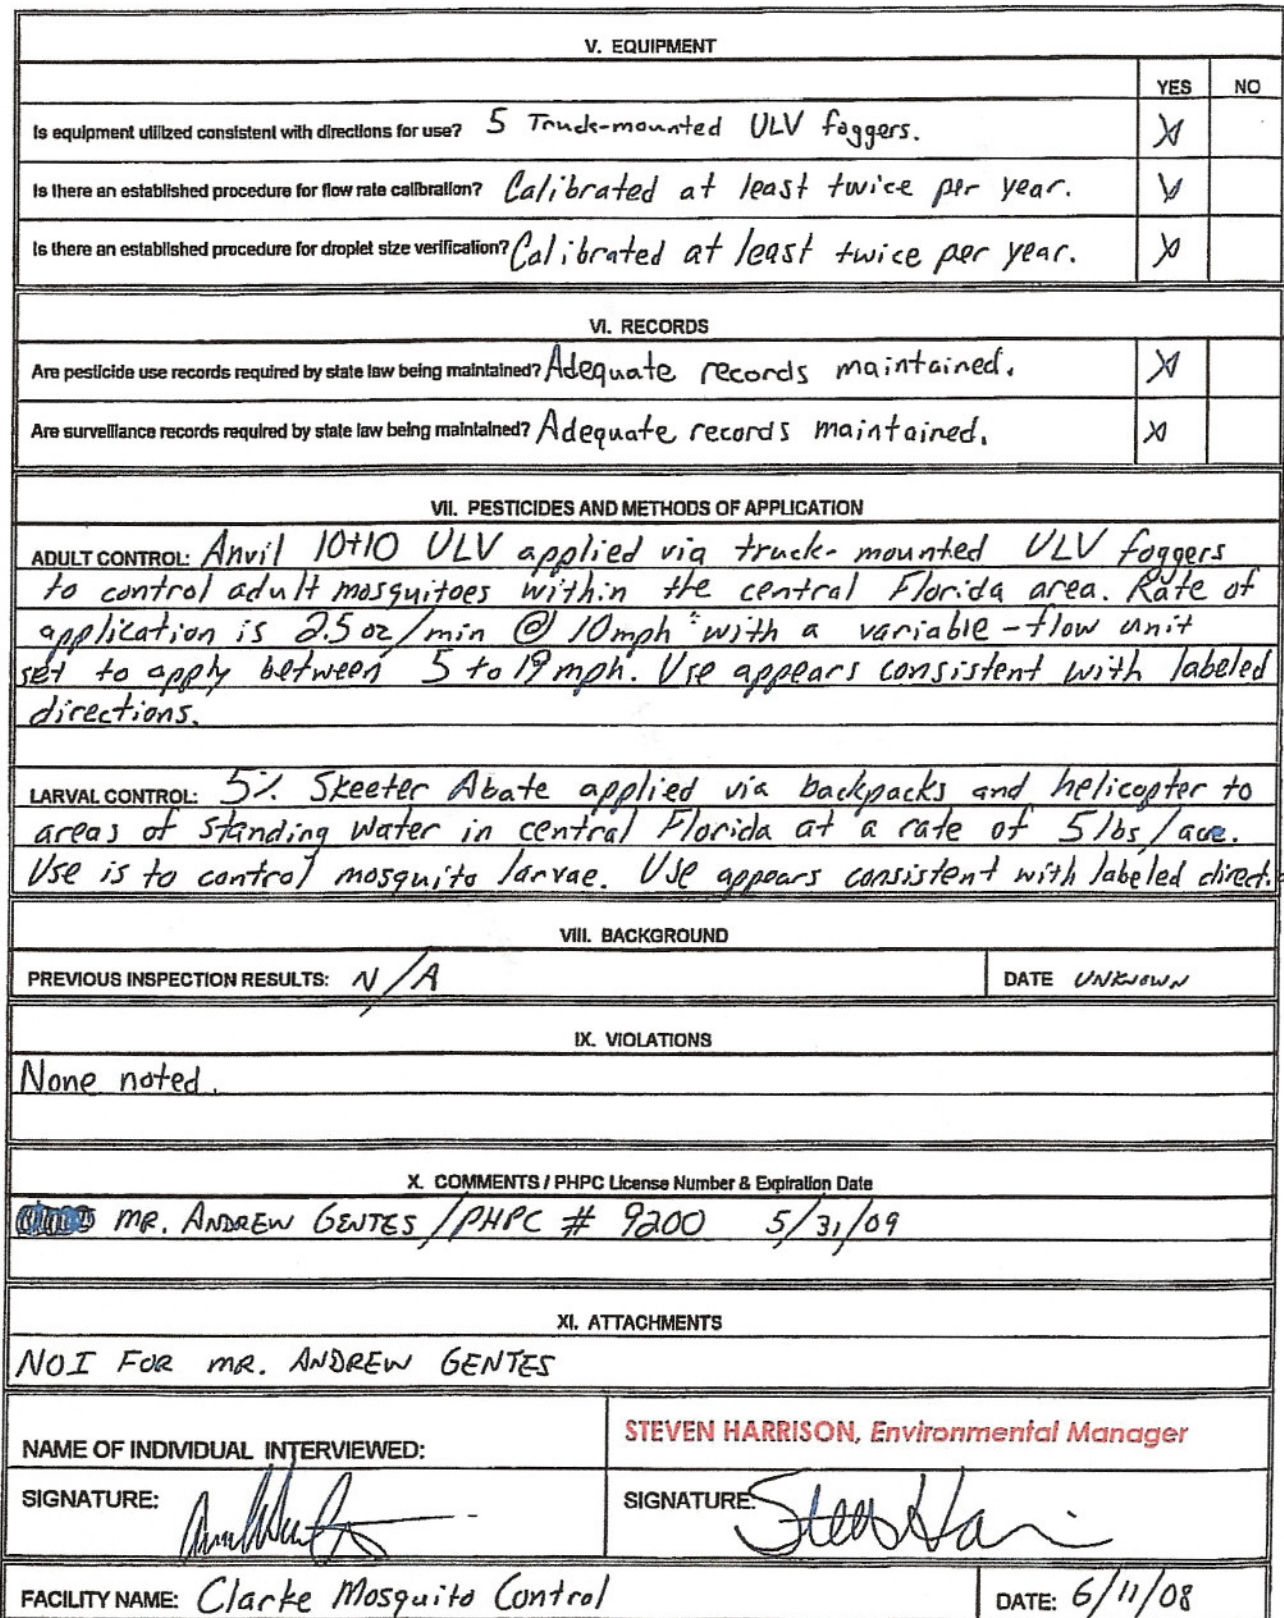 V. EQUIPMENT
YES NO
Is equipment utilized consistent with directions for use? 5 Truck-mounted ULV foggers. X
Is there an established procedure for flow rate calibration? Calibrated at least twice per year. X
Is there an established procedure for droplet size verification? Calibrated at least twice per year. X
VI. RECORDS
Are pesticide use records required by state law being maintained? Adequate records maintained. X
Are surveillance records required by state law being maintained? Adequate records maintained. X
VII. PESTICIDES AND METHODS OF APPLICATION
ADULT CONTROL: Anvil 10+10 ULV applied via truck-mounted ULV foggers
to control adult mosquitoes within the central Florida area. Rate of
application is 2.5 oz/min @ 10mph with a variable-flow unit
set to apply between 5 to 19 mph. Use appears consistent with labeled
directions.
LARVAL CONTROL: 5% Skeeter Abate applied via backpacks and helicopter to
areas of standing water in central Florida at a rate of 5 lbs/acre.
Use is to control mosquito larvae. Use appears consistent with labeled direct.
VIII. BACKGROUND
PREVIOUS INSPECTION RESULTS: N/A DATE UNKNOWN
IX. VIOLATIONS
None noted.
X. COMMENTS / PHPC License Number & Expiration Date
MR. ANDREW GENTES / PHPC # 9200 5/31/09
XI. ATTACHMENTS
NOI FOR MR. ANDREW GENTES
NAME OF INDIVIDUAL INTERVIEWED: STEVEN HARRISON, Environmental Manager
SIGNATURE: SIGNATURE:
FACILITY NAME: Clarke Mosquito Control DATE: 6/11/08